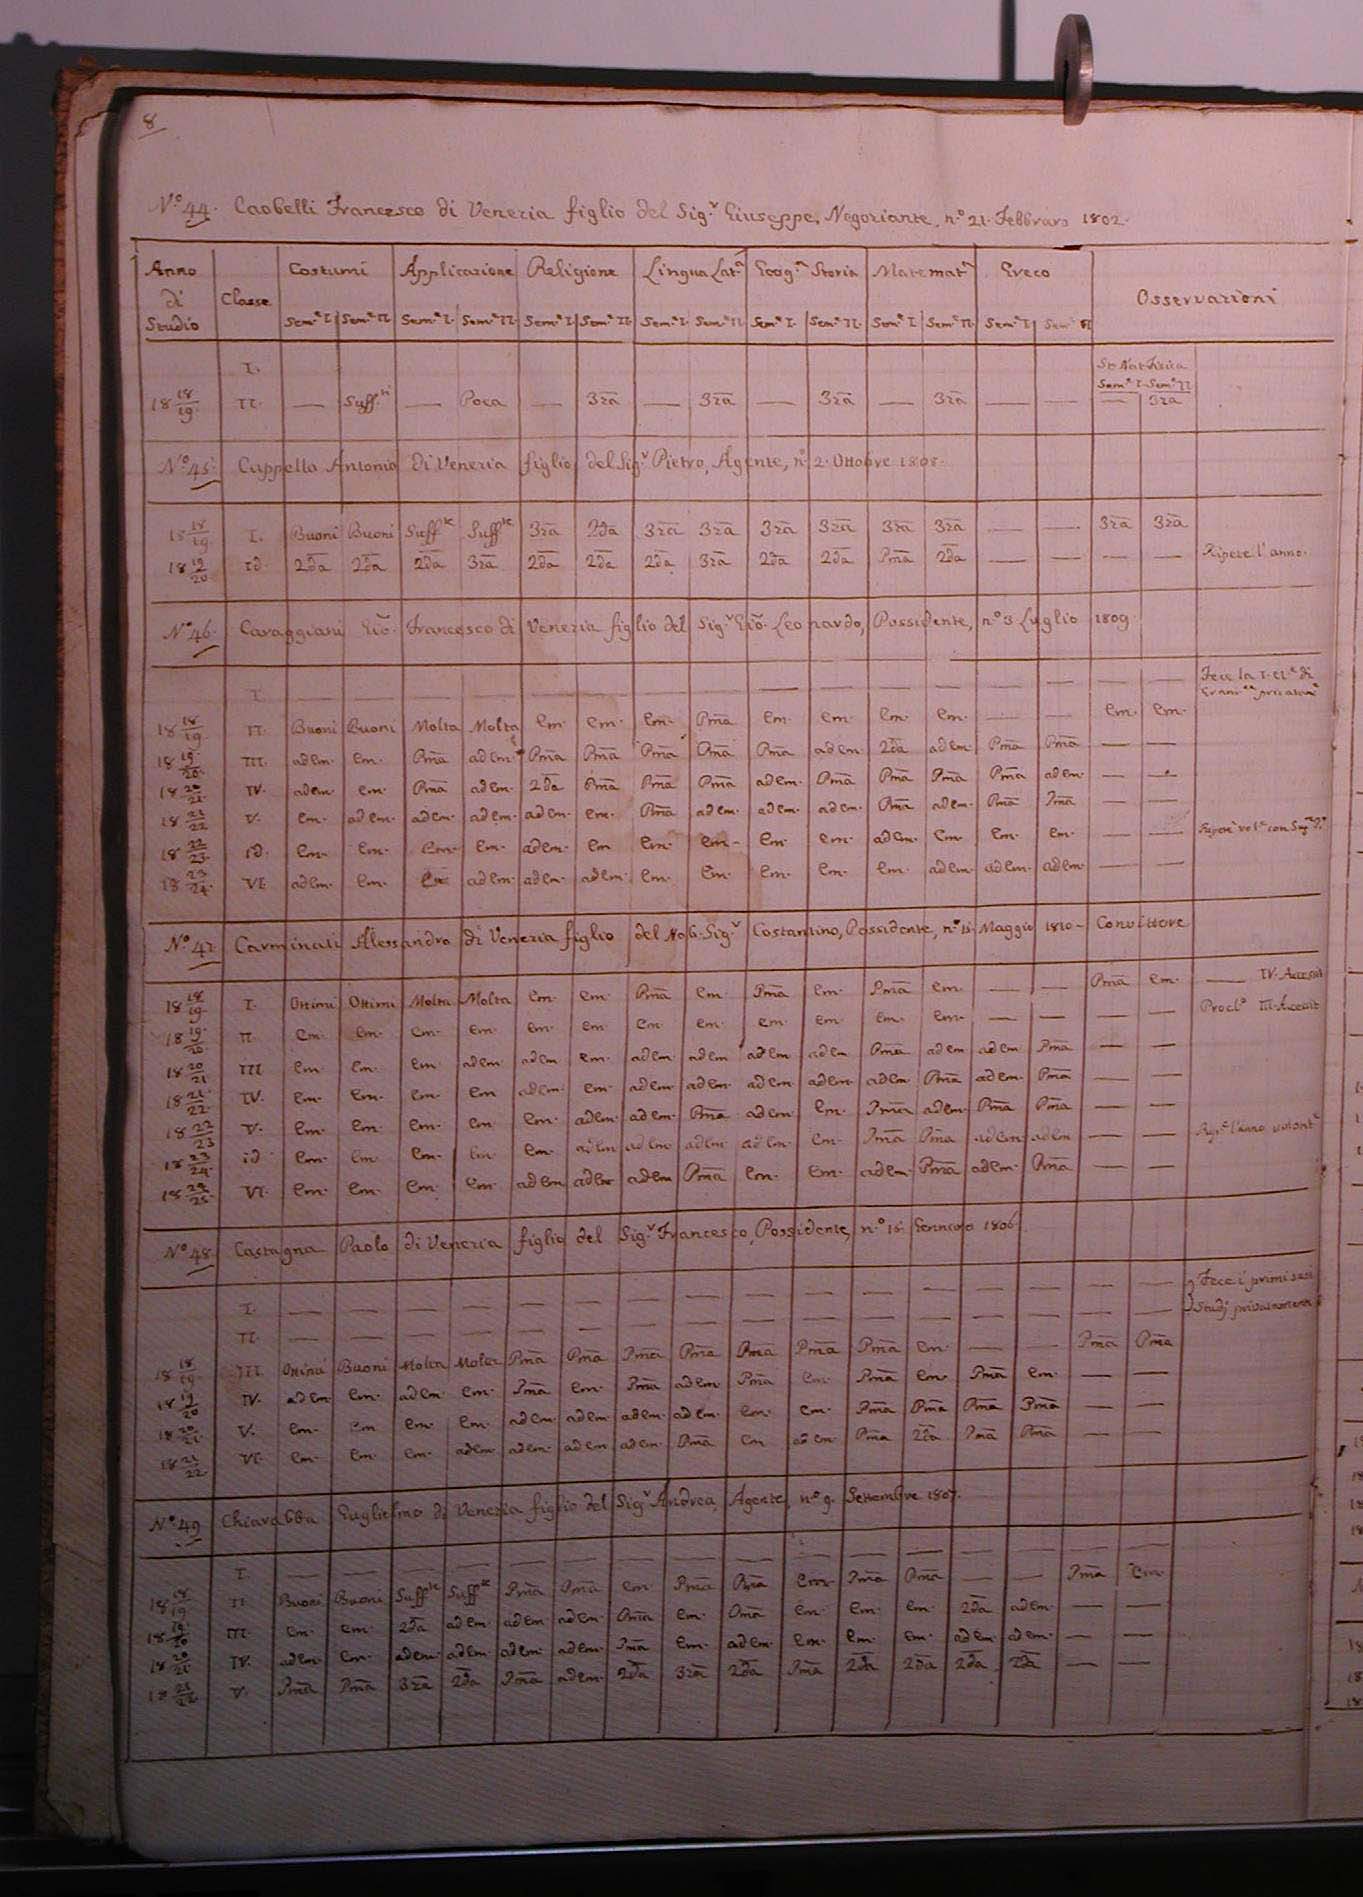 8
N.o 44. Caobelli Francesco di Venezia figlio del Sig.r Giuseppe, Negoziante, n.o 21. Febbraro 1802.
Anno di Studio Classe Costumi Applicazione Religione Lingua Lat.a Geog.a Storia Matemat.a Greco Osservazioni
Sem.e I. Sem.e II. Sem.e I. Sem.e II. Sem.e I. Sem.e II. Sem.e I. Sem.e II. Sem.e I. Sem.e II. Sem.e I. Sem.e II. Sem.e I. Sem.e II.
I. St. Nat. Fisica
Sem.e I. Sem.e II
18 18/19. II. — Suff.ti — Poca — 3za — 3za — 3za — 3za — — — 3za
N.o 45. Cappello Antonio di Venezia figlio del Sig.r Pietro, Agente, n. 2. Ottobre 1808.
18 18/19. I. Buoni Buoni Suff.te Suff.te 3za 2da 3za 3za 3za 3za 3za 3za — — 3za 3za
18 19/20 id. 2da 2da 2da 3za 2da 2da 2da 3za 2da 2da Pma 2da — — — — Ripete l'anno.
N.o 46. Caraggiani Gio. Francesco di Venezia figlio del Sig.r Gio. Leonardo, Possidente, n.o 3 Luglio 1809.
I. — — — — — — — — — — — — — — — — Fece la I. Cl.e di
Gram.ca privatam.e
18 18/19. II. Buoni Buoni Molta Molta Em. Em. Em. Pma Em. Em. Em. Em. — — Em. Em.
18 19/20. III. ad em. Em. Pma ad em. Pma Pma Pma Pma Pma ad em 2da ad em. Pma Pma — —
18 20/21. IV. ad em. Em. Pma ad em. 2da Pma Pma Pma ad em. Pma Pma Pma Pma ad em. — —
18 21/22 V. Em. ad em. ad em. ad em. ad em. Em. Pma ad em. ad em. ad em. Pma ad em. Pma Pma — —
18 22/23. id. Em. Em. Em. Em. ad em. Em Em. Em. Em. Em. ad em. Em. Em. Em. — —
18 23/24. VI. ad em. Em. Em ad em. ad em. ad em. Em. Em. Em. Em. Em. ad em. ad em. ad em. — —
N.o 47. Carminati Alessandro di Venezia figlio del Nob. Sig.r Costantino, Possidente, n.o 15. Maggio 1810 - Convittore
18 18/19. I. Ottimi Ottimi Molta Molta Em. Em. Pma Em Pma Em. Pma Em. — — Pma Em. — IV. Accessit
18 19/20. II. Em. Em. Em. Em. Em. Em Em Em. Em. Em. Em. Em. — — — — Procl.o III. Accessit
18 20/21 III Em. Em. Em. ad em ad em Em. ad em ad em ad em ad em Pma ad em ad em Pma — —
18 21/22. IV. Em. Em. Em. Em ad em. Em. ad em. ad em. ad em. ad em. ad em Pma ad em. Pma — —
18 22/23 V. Em. Em. Em. Em. Em. ad em. ad em. Pma ad em. Em. Pma ad em. Pma Pma — —
18 23/24. id. Em. Em. Em. Em. Em. ad em ad em. ad em. ad em. Em. Pma Pma ad em. ad em — — l'anno volont.e
18 24/25. VI. Em. Em. Em. Em. ad em ad em ad em Pma Em. Em. ad em. Pma ad em. Pma — —
N.o 48. Castagna Paolo di Venezia figlio del Sig.r Francesco, Possidente, n.o 15. Gennaro 1806.
I. — — — — — — — — — — — — — — — — Fece i primi
II. — — — — — — — — — — — — — — — — Studj privatamente
18 18/19. III. Ottimi Buoni Molta Molta Pma Pma Pma Pma Pma Pma Pma Em. — — Pma Pma
18 19/20 IV. ad em. Em. ad em. Em. Pma Em. Pma ad em. Pma Em. Pma Em. Pma Em. — —
18 20/21. V. Em. Em Em. Em. ad em. ad em. ad em. ad em. Em. Em. Pma Pma Pma Pma — —
18 21/22. VI. Em. Em. Em. ad em. ad em. ad em ad em. Pma Em ad em. Pma 2da Pma Pma — —
N.o 49 Chiarabba Guglielmo di Venezia figlio del Sig.r Andrea, Agente, n.o 9. Settembre 1807.
I. — — — — — — — — — — — — — — — —
18 18/19. II. Buoni Buoni Suff.te Suff.te Pma Pma Em Pma Pma Em Pma Pma — — Pma Em
18 19/20 III. Em. Em. 2da ad em. ad em ad em. Pma Em. Pma Em. Em. Em. 2da ad em. — —
18 20/21. IV. ad em. Em. ad em. ad em. ad em. ad em. Pma Em. ad em. Em. Em. Em. ad em. ad em. — —
18 21/22. V. Pma Pma 3za 2da Pma ad em. 2da 3za 2da Pma 2da 2da 2da 2da — —